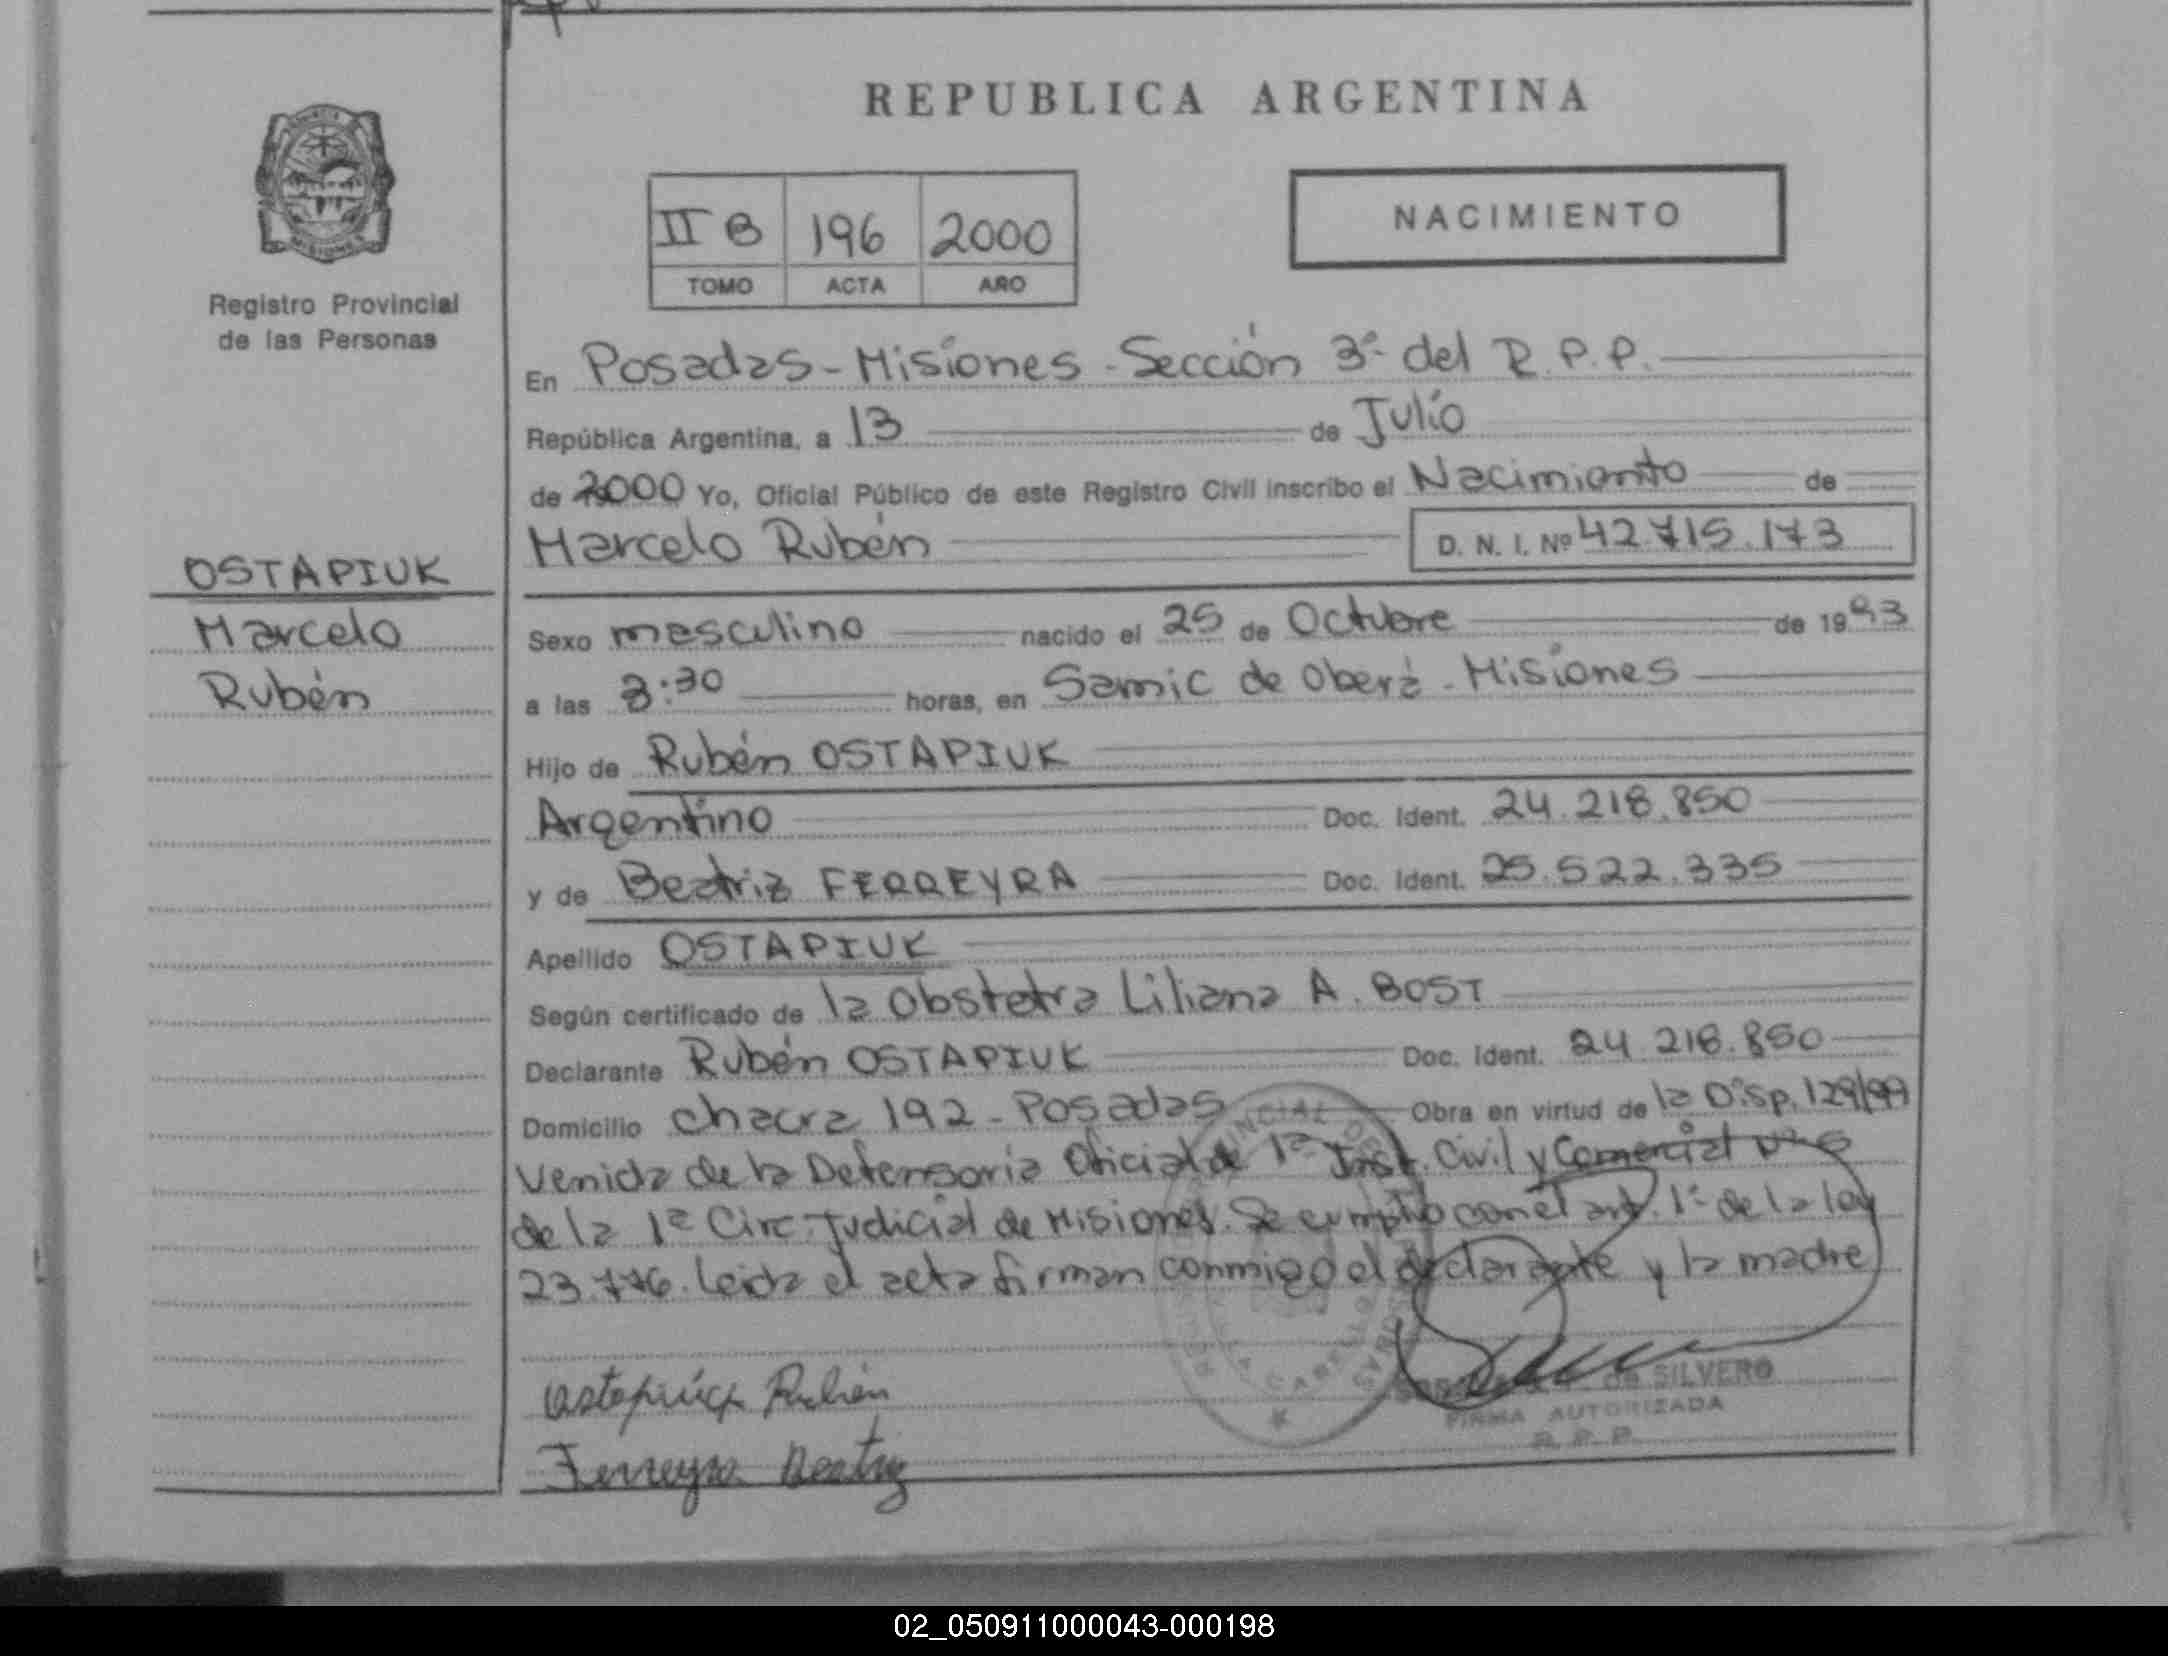 REPUBLICA ARGENTINA
MISIONES
Registro Provincial
de las Personas
II B 196 2000
TOMO ACTA AÑO
NACIMIENTO
En Posadas - Misiones - Sección 3ª del R.P.P.
República Argentina, a 13 de Julio
de 2000 Yo, Oficial Público de este Registro Civil inscribo el Nacimiento de
Marcelo Rubén D. N. I. Nº 42.715.173
OSTAPIUK
Marcelo
Rubén
Sexo masculino nacido el 25 de Octubre de 1993
a las 3:30 horas, en Samic de Oberá - Misiones
Hijo de Rubén OSTAPIUK
Argentino Doc. Ident. 24.218.850
y de Beatriz FERREYRA Doc. Ident. 25.522.335
Apellido OSTAPIUK
Según certificado de la Obstetra Liliana A. BOST
Declarante Rubén OSTAPIUK Doc. Ident. 24.218.850
Domicilio Chacra 192 - Posadas Obra en virtud de la Disp. 129/99
Venida de la Defensoría Oficial de 1ª Inst. Civil y Comercial Nº 5
de la 1ª Circ. Judicial de Misiones. Se cumplió con el art. 1º de la ley
23.776. Leida el acta firman conmigo el declarante y la madre
Ostapiuck Rubén
Ferreyra Beatriz
de SILVERO
FIRMA AUTORIZADA
R. P. P.
02_050911000043-000198